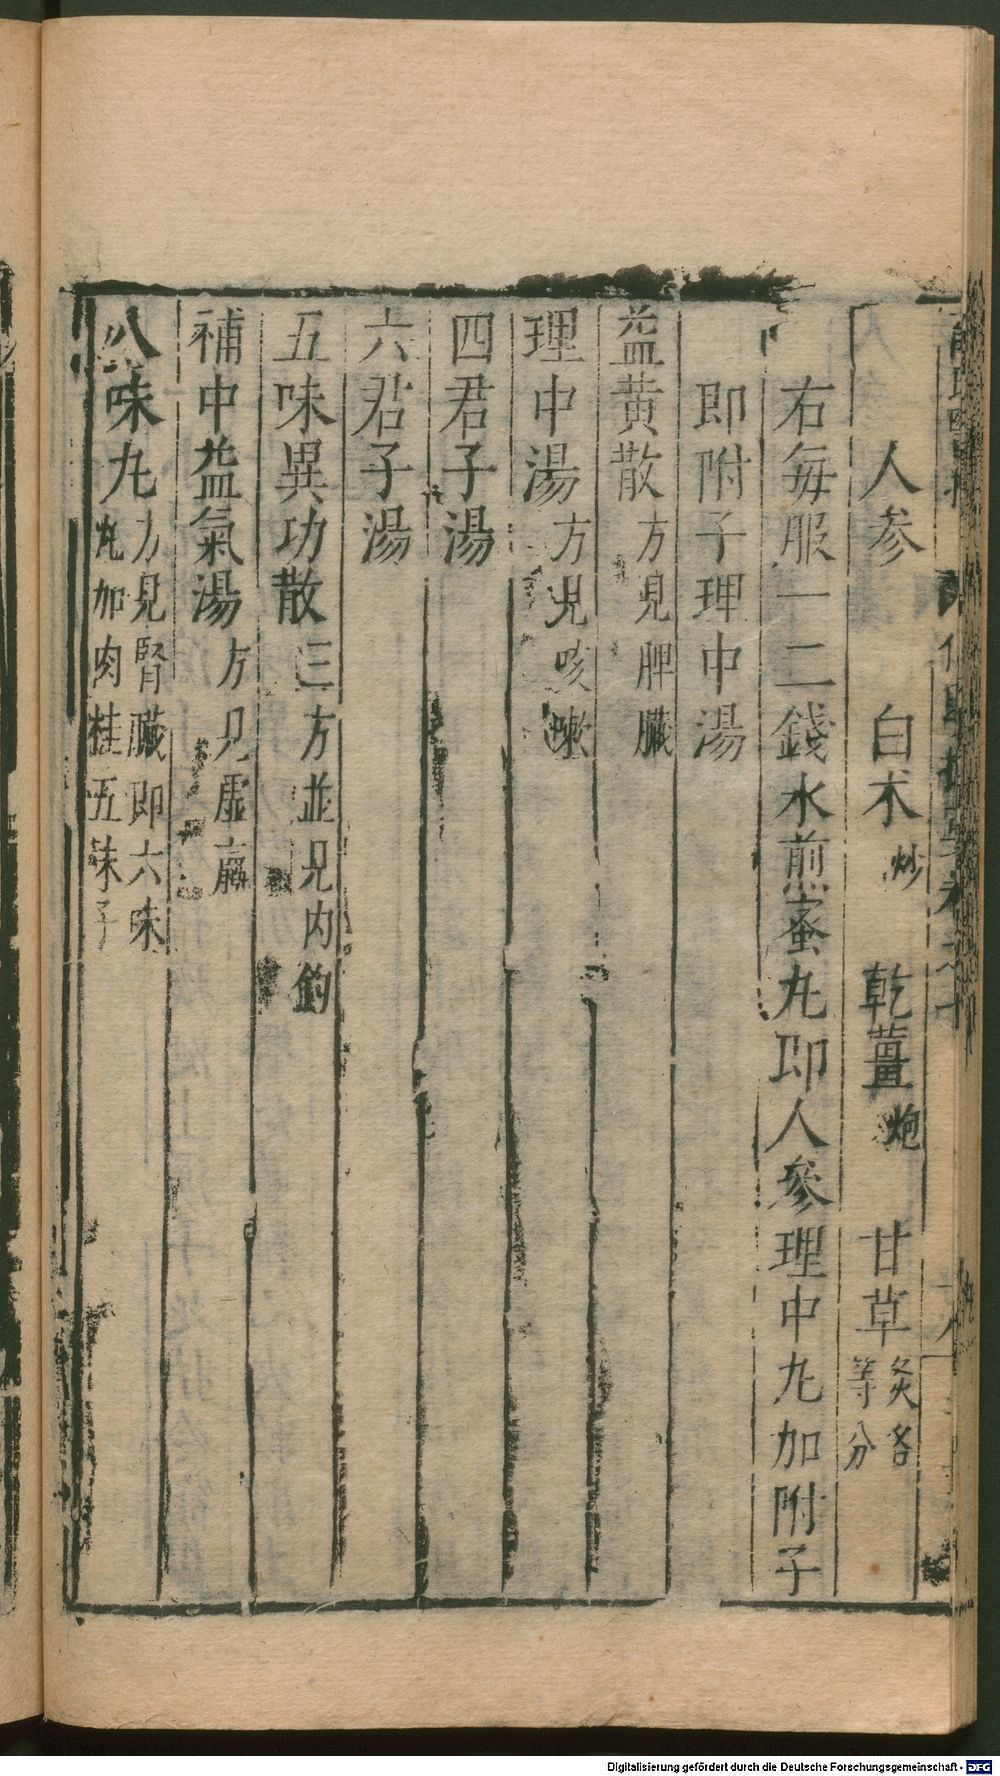 人参　白朮炒　乾薑炮　甘草炙各等分
右每服一二錢水煎蜜丸即人參理中丸加附子
即附子理中湯
益黃散方見脾臟
理中湯方見咳嗽
四君子湯
六君子湯
五味異功散三方並見内釣
補中益氣湯方見虛羸
八味丸方見腎臟即六味丸加肉桂五味子
Digitalisierung gefördert durch die Deutsche Forschungsgemeinschaft - DFG